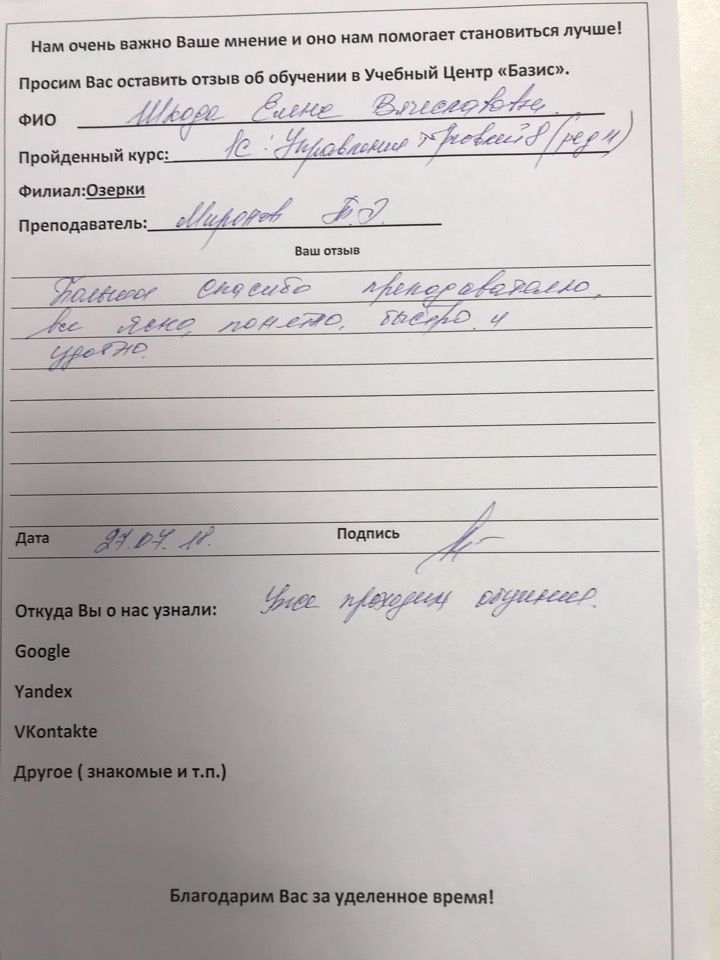 Нам очень важно Ваше мнение и оно нам помогает становиться лучше!
Просим Вас оставить отзыв об обучении в Учебный Центр «Базис».
ФИО Шкода Елена Вячеславовна
Пройденный курс: 1С: Управления торговлей 8 (ред 11)
Филиал:Озерки
Преподаватель: Миронов
Ваш отзыв
Большое спасибо преподавателю,
все ясно, понятно, быстро и
удобно.
Дата 27.07.18. Подпись
Откуда Вы о нас узнали: Уже проходили обучение.
Google
Yandex
VKontakte
Другое ( знакомые и т.п.)
Благодарим Вас за уделенное время!